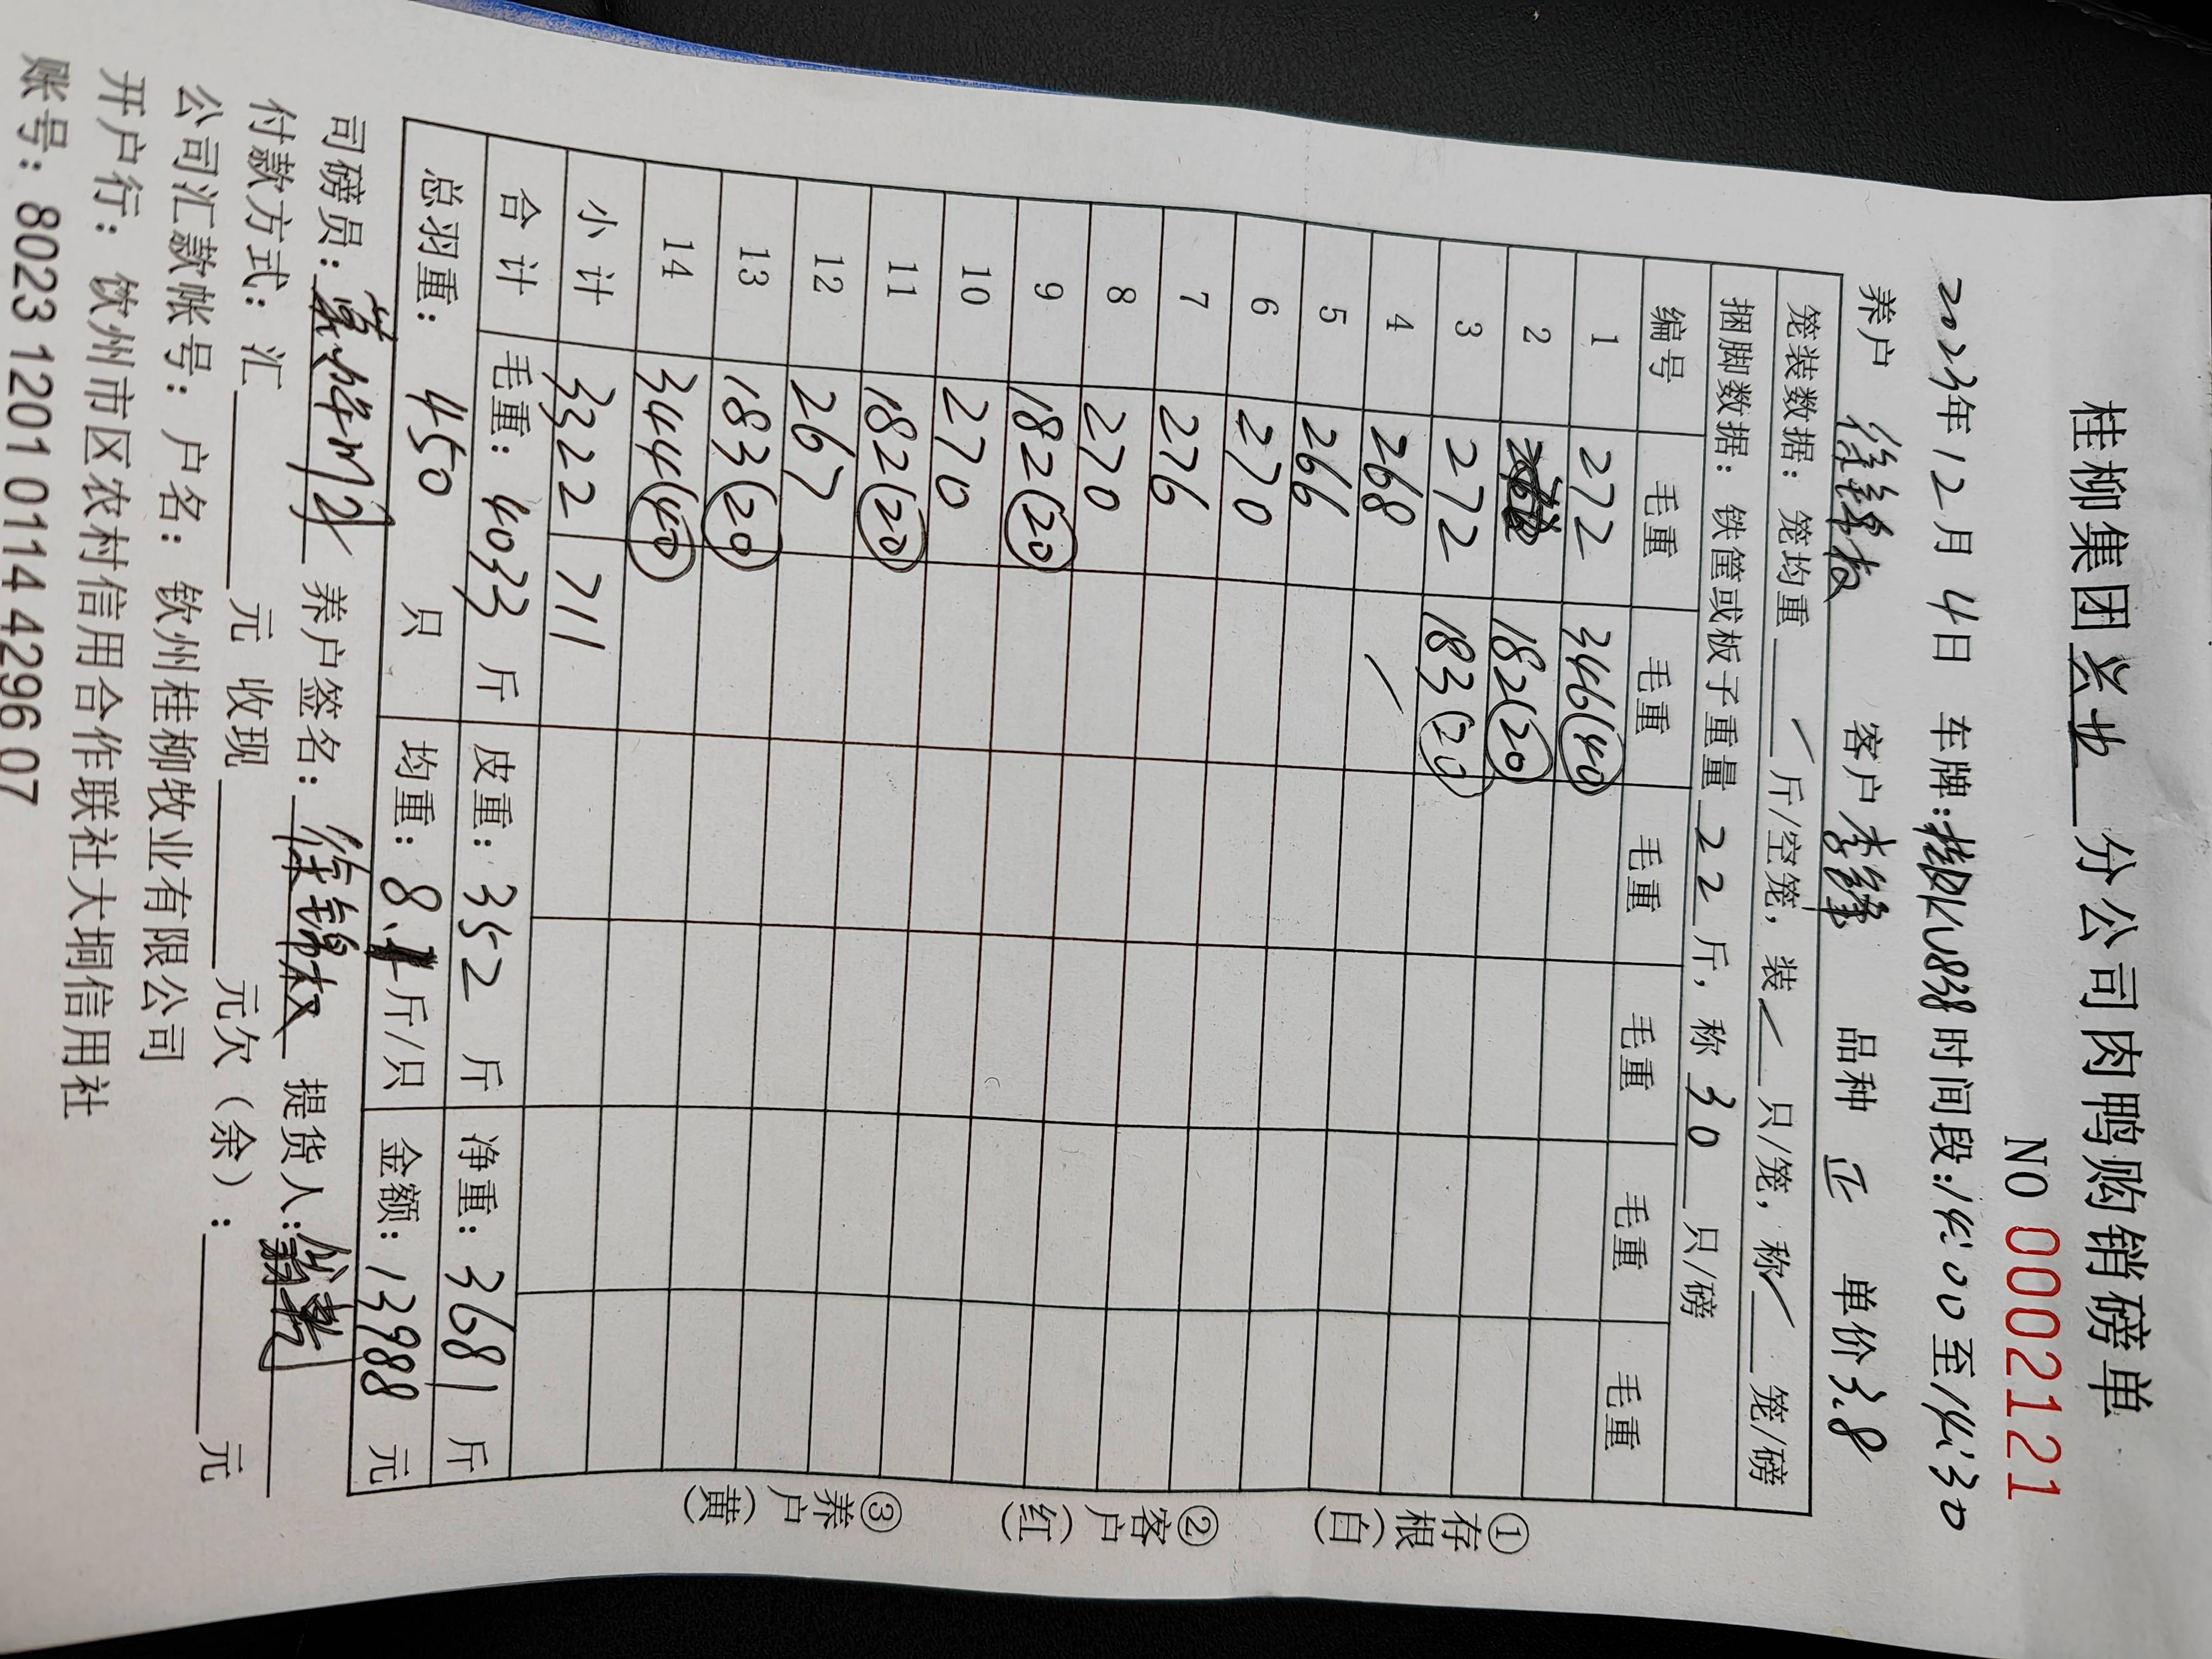 桂柳集团兴业分公司肉鸭购销磅单
NO 00021121
2023年12月4日 车牌:桂KU838 时间段:14:00至14:30
养户 徐锦权 客户 李锋 品种 正 单价 3.8
笼装数据：笼均重 / 斤/空笼，装 / 只/笼，称 / 笼/磅
捆脚数据：铁筐或板子重量 22 斤，称 30 只/磅
编号 毛重 毛重 毛重 毛重 毛重 毛重
1 272 346(40)
2 182(20)
3 272 183(20)
4 268 /
5 266
6 270
7 276
8 270
9 182(20)
10 270
11 182(20)
12 267
13 183(20)
14 344(40)
小计 3322 711
合计 毛重：4033 斤 皮重：352 斤 净重：3681 斤
总羽重：450 只 均重：8.1 斤/只 金额：13988 元
司磅员： 养户签名：徐锦权 提货人：
付款方式：汇 元 收现 元欠（余）： 元
公司汇款帐号：户名：钦州桂柳牧业有限公司
开户行：钦州市区农村信用合作联社大垌信用社
账号：8023 1201 0114 4296 07
①存根（白）
②客户（红）
③养户（黄）